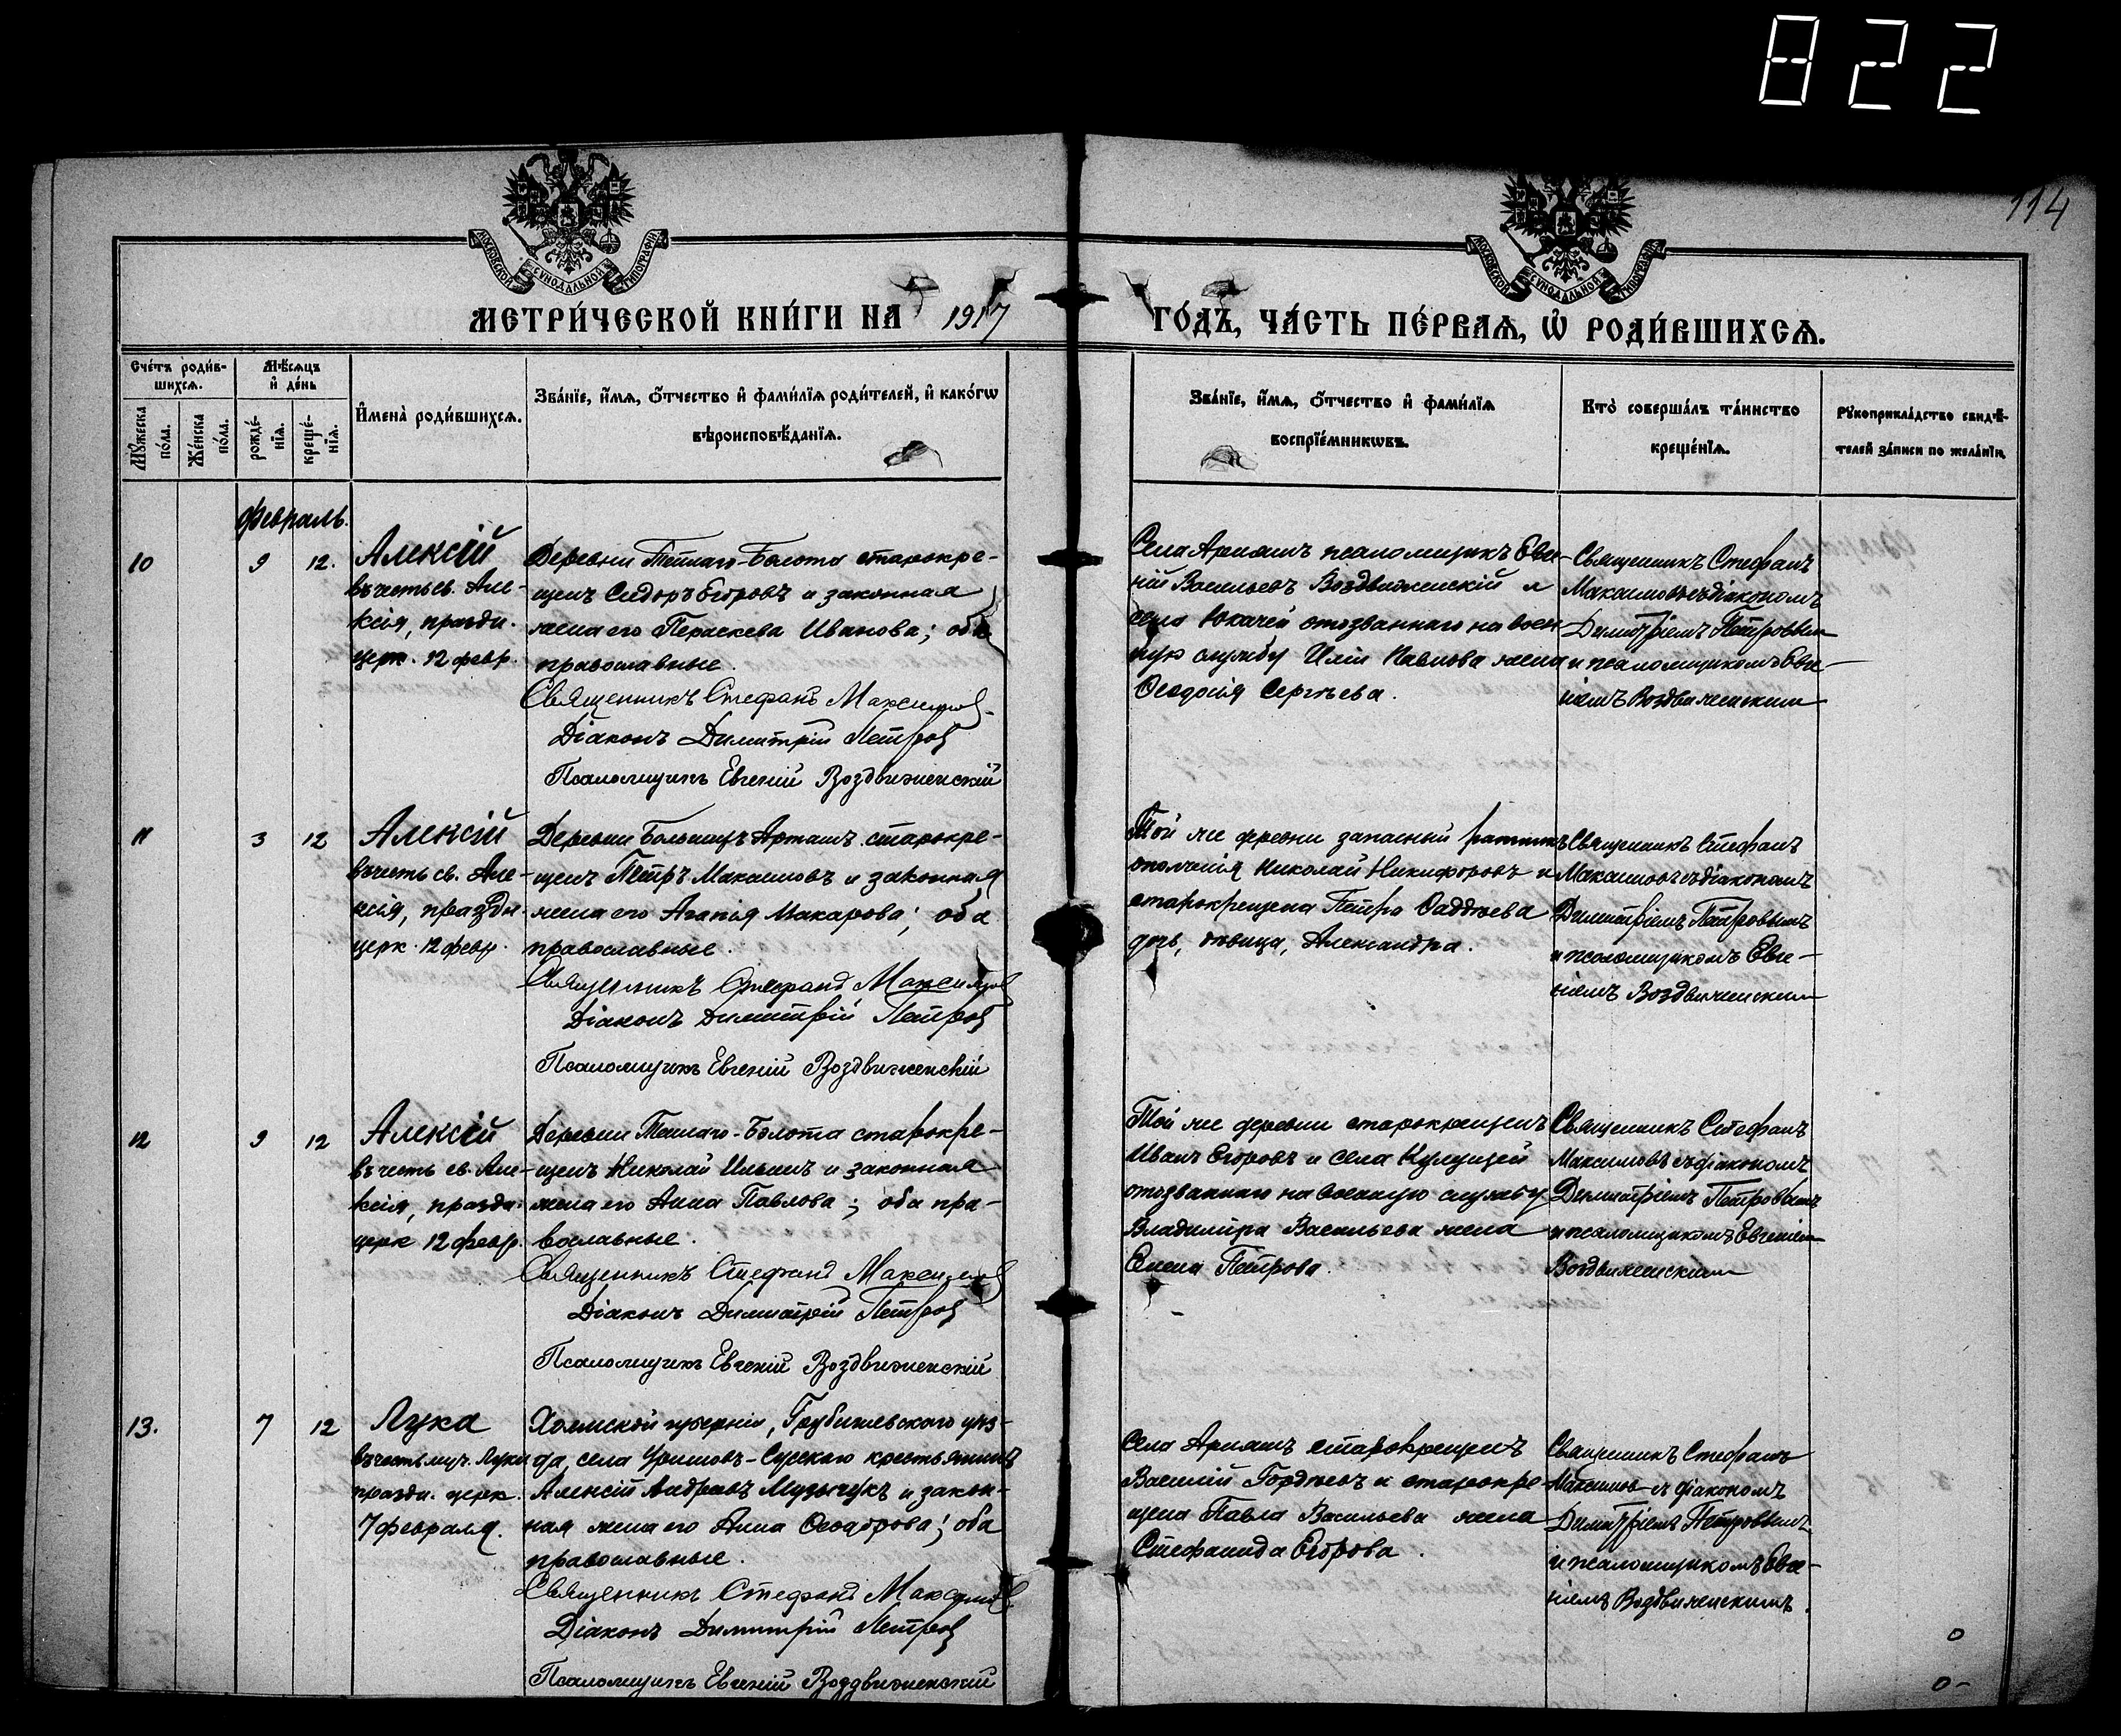 822
114
МОСКОВСКОЙ СѴНОДАЛЬНОЙ ТИПОГРАФІИ
МОСКОВСКОЙ СѴНОДАЛЬНОЙ ТИПОГРАФІИ
МЕТРИ́ЧЕСКОЙ КНИ́ГИ НА 1917 ГО́ДЪ, ЧА́СТЬ ПЕ́РВАѦ, Ѡ҆ РОДИ́ВШИХСѦ.
Сче́тъ роди́в-
шихсѧ.
Мꙋ́жеска по́ла.
Же́нска по́ла.
Мѣ́сѧцъ и҆ де́нь
рожде́-нїѧ.
креще́-нїѧ.
И҆мена̀ роди́вшихсѧ.
Зва́нїе, и҆́мѧ, ѻ҆́тчество и҆ фами́лїѧ роди́телей, и҆ како́гѡ
вѣроисповѣ́данїѧ.
Зва́нїе, и҆́мѧ, ѻ҆́тчество и҆ фами́лїѧ
воспрїе́мникѡвъ.
Кто̀ соверша́лъ та́инство
креще́нїѧ.
Рꙋкоприкла́дство свидѣ́-
телей за́писи по жела́нїю.
Февраль.
10 9 12. Алексій
въ честь св. Але-
ксія, праздн.
церк. 12 февр.
Деревни Теплаго-Болота старокре-
щенъ Сидоръ Егоровъ и законная
жена его Параскева Иванова; оба
православные.
Священникъ Стефанъ Максимовъ
Діаконъ Димитрій Петровъ
Псаломщикъ Евгеній Воздвиженскій
Села Арняшъ псаломщикъ Евге-
ній Васильевъ Воздвиженскій и
села Юкачей отозваннаго на воен
ную службу Иліи Павлова жена
Ѳеодосія Сергѣева.
Священникъ Стефанъ
Максимовъ съ діакономъ
Димитріемъ Петровым
и псаломщикомъ Евге-
ніемъ Воздвиженским
11 3 12 Алексій
въ честь св. Але-
ксія, праздн
церк. 12 февр.
Деревни Большихъ Арташъ старокре-
щенъ Петръ Максимовъ и законная
жена его Агапія Макарова; оба
православные.
Священникъ Стефанъ Максимов
Діаконъ Димитрій Петровъ
Псаломщикъ Евгеній Воздвиженскій
Той же деревни запасный ратникъ
ополченія Николай Никифоровъ и
старокрещена Петра Ѳаддѣева
дочь, дѣвица, Александра.
Священникъ Стефанъ
Максимовъ съ діакономъ
Димитріемъ Петровымъ
и псаломщикомъ Евге-
ніемъ Воздвиженским
12 9 12 Алексій
въ честь св. Але-
ксія, праздн.
церк 12 февр.
Деревни Теплаго-Болота старокре-
щенъ Николай Ильинъ и законная
жена его Анна Павлова; оба пра-
вославные.
Священникъ Стефанъ Максимов
Діаконъ Димитрій Петровъ
Псаломщикъ Евгеній Воздвиженскій
Той же деревни старокрещенъ
Иванъ Егоровъ и села Кулущей
отозваннаго на военную службу
Владиміра Васильева жена
Елена Петрова.
Священникъ Стефанъ
Максимовъ съ діакономъ
Димитріемъ Петровымъ
и псаломщикомъ Евгеніем
Воздвиженским
13. 7 12 Лука
въ честь муч. Луки
праздн. церк.
7 февраля.
Холмской губерніи, Грубешевскаго уѣз-
да, села крестьянинъ
Алексій Андреевъ Музычукъ и закон-
ная жена его Анна Ѳеодорова; оба
православные.
Священникъ Стефанъ Максимов
Діаконъ Димитрій Петровъ
Псаломщикъ Евгеній Воздвиженскій
Села Арняшъ старокрещенъ
Василій Гордѣевъ и старокре-
щена Павла Васильева жена
Стефанида Егорова.
Священникъ Стефанъ
Максимов съ діакономъ
Димитріемъ Петровымъ
и псаломщикомъ Евге-
ніемъ Воздвиженскимъ.